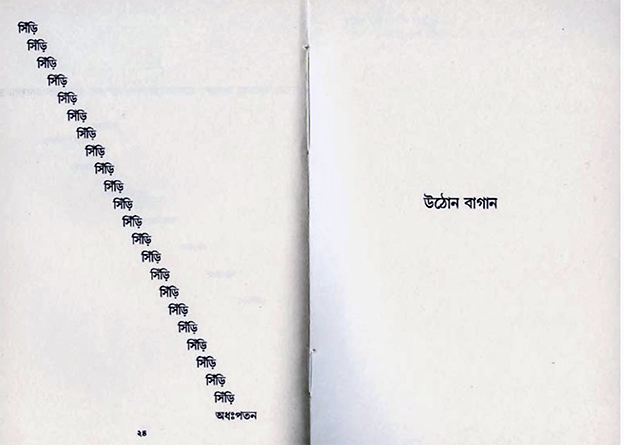 সিঁড়ি
সিঁড়ি
সিঁড়ি
সিঁড়ি
সিঁড়ি
সিঁড়ি
সিঁড়ি
সিঁড়ি
সিঁড়ি
সিঁড়ি
সিঁড়ি
সিঁড়ি
সিঁড়ি
সিঁড়ি
সিঁড়ি
সিঁড়ি
সিঁড়ি
সিঁড়ি
সিঁড়ি
সিঁড়ি
সিঁড়ি
সিঁড়ি
অধঃপতন
২৪
উঠোন বাগান